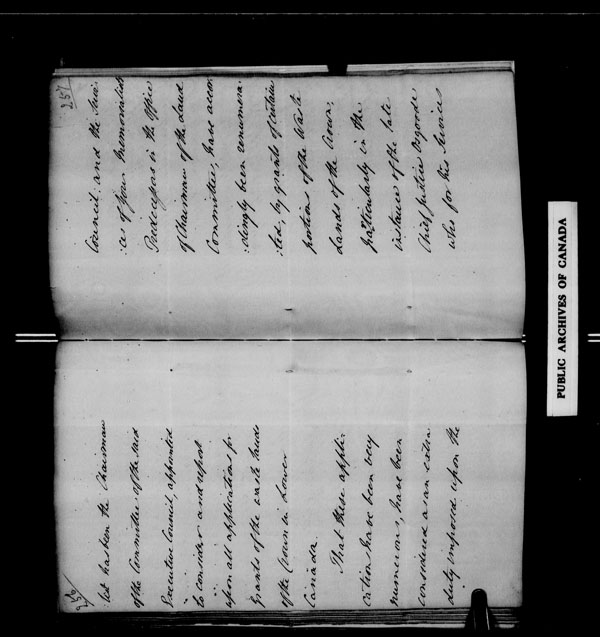 256
:list has been the Chairman
of the Committee of the said
Executive Council, appointed
to consider and report
upon all applications for
Grants of the waste lands
of the Crown in Lower
Canada.
That these appli:
cations have been very
numerous, have been
considered as an extra
duty imposed upon the
257
Council: and the Servi:
:ces of your Memorialists
Predecessors in the Office
of Chairman of the Land
Committee, have accor
:dingly been remunera:
:ted, by grants of certain
portion of the Waste
Lands of the Crown;
particularly in the
instance of the late
Chief Justice Osgoode
who for his Services
PUBLIC ARCHIVES OF CANADA